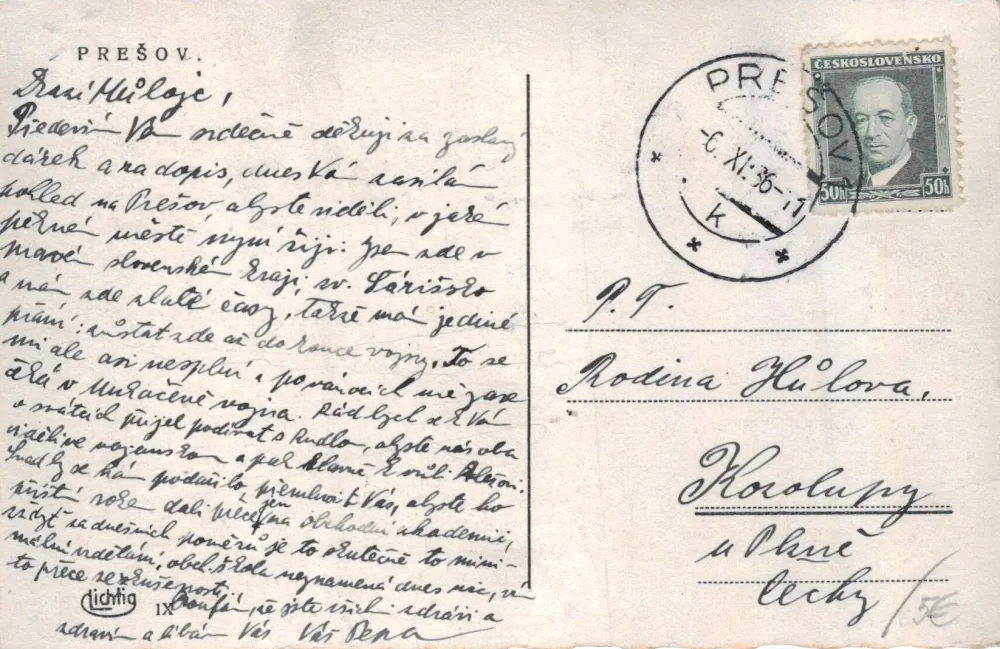 PREŠOV.
Drazí Hůlojc,
Především Vám srdečně děkuji za zaslaný
dárek a za dopis, dnes Vám zasílám
pohled na Prešov, abyste viděli, v jakém
pěkném městě nyní žiji. Jsem zde v
pravém slovenském kraji, zv. Šárišsko
a mám zde zlaté časy, takže mám jediné
přání: zůstat zde až do konce vojny. To se
mi ale asi nesplní a po vánocích mě zase
čeká v Mukačevě vojna. Rád bych se k Vám
o svátcích přijel podívat s Rudlou, abyste nás oba
viděli ve vojenskom a pak hlavně kvůli
Snad by se nám podařilo přemluvit Vás, abyste ho
příští rok dali přece jen na obchodní akademii,
vždyť za dnešních poměrů je to skutečně to mini-
mální vzdělání, obch. škola neznamená dnes nic, vím
to přece ze zkušenosti.
Doufám, že jste všichni zdrávi a
zdravím a líbám Vás Váš Pepa
Lichtig
IX
PREŠOV 1
-6.XI.36-11
k
ČESKOSLOVENSKO
50h 50h
P. T.
Rodina Hůlova,
Kozolupy
u Plzně
Čechy
5€